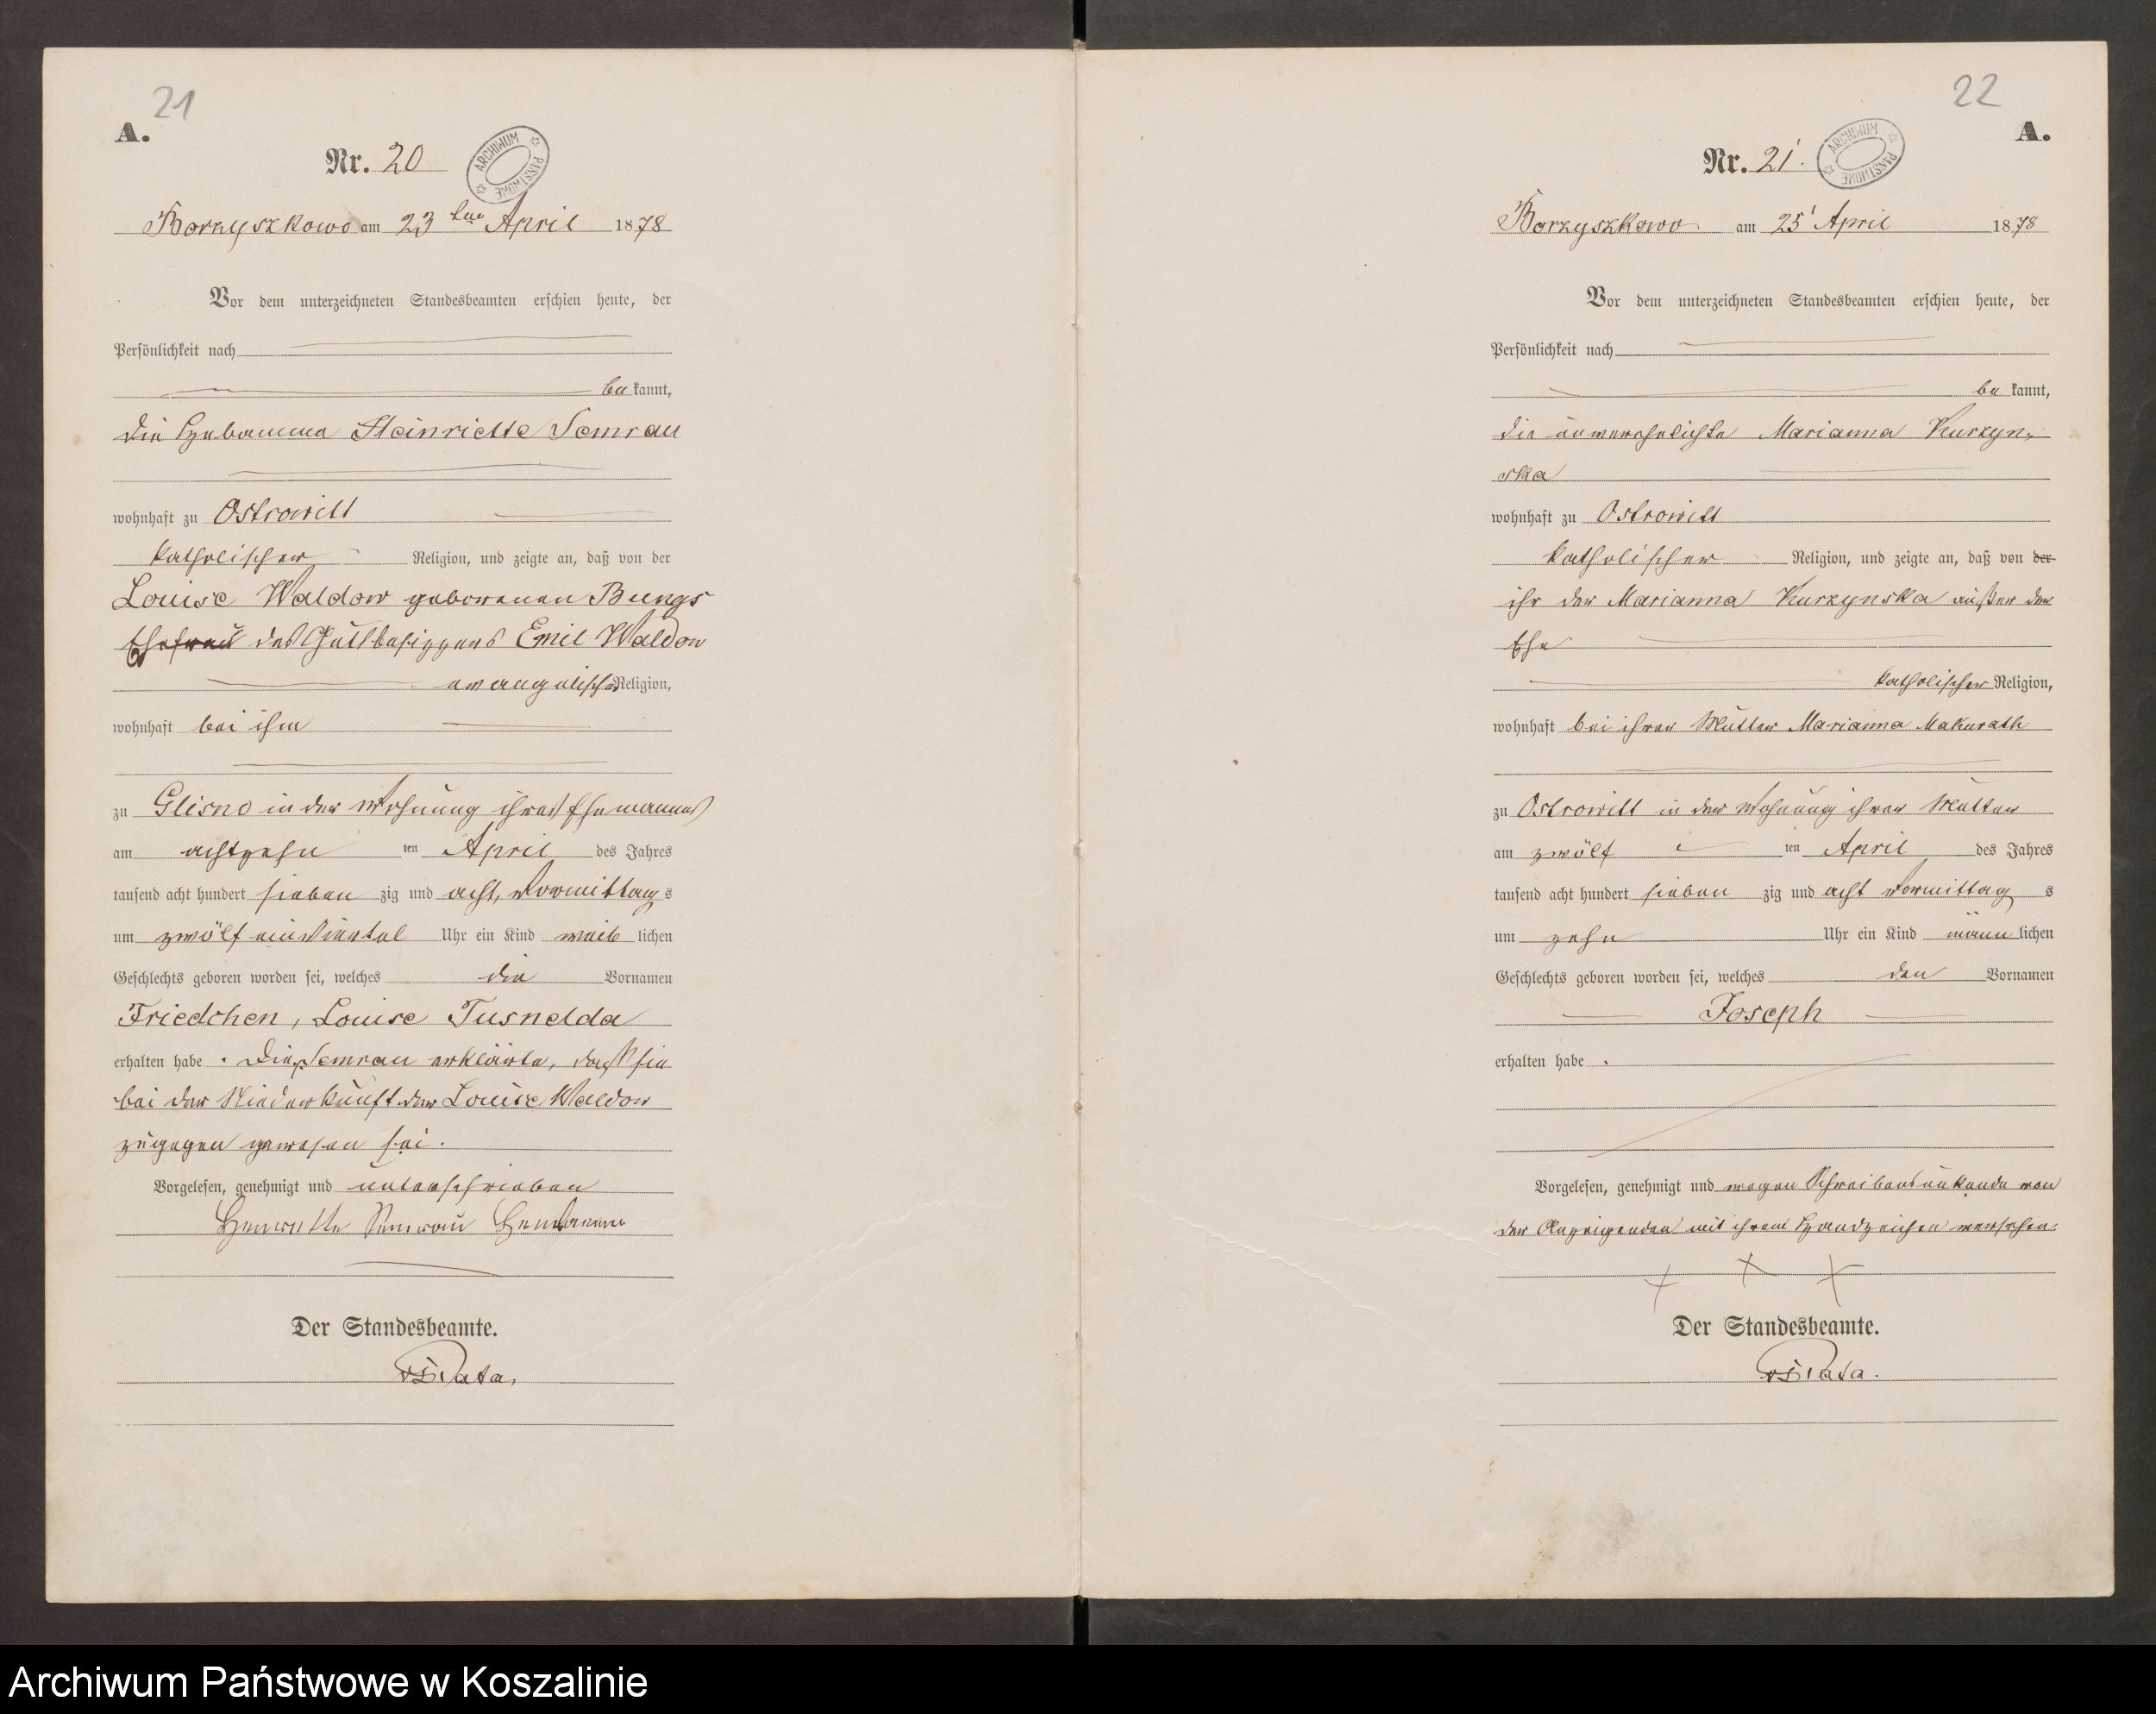 21
A.
Nr. 20
ARCHIWUM PAŃSTWOWE
Borzyszkowo am 23ten April 1878
Vor dem unterzeichneten Standesbeamten erschien heute, der
Persönlichkeit nach
bekannt,
die Hebamme Heinriette Semrau
wohnhaft zu Ostrowitt
katholischer Religion, und zeigte an, daß von der
Louise Waldow geborenen Bungs
Ehefrau des Gutsbesitzers Emil Waldow
evangelischer Religion,
wohnhaft bei ihm
zu Glisno in der Wohnung ihres Ehemannes
am achtzehn ten April des Jahres
tausend acht hundert sieben zig und acht, Vormittags
um zwölf ein Viertel Uhr ein Kind weiblichen
Geschlechts geboren worden sei, welches die Vornamen
Friedchen, Louise Tusnelda
erhalten habe. Die Semrau erklärte, daß sie
bei der Niederkunft der Louise Waldow
zugegen gewesen sei.
Vorgelesen, genehmigt und unterschrieben
Semrau
Der Standesbeamte.
22
A.
Nr. 21.
ARCHIWUM PAŃSTWOWE
Borzyszkowo am 25 April 1878
Vor dem unterzeichneten Standesbeamten erschien heute, der
Persönlichkeit nach
bekannt,
die unverehelichte Marianna Kurzyn-
ska
wohnhaft zu Ostrowitt
katholischer Religion, und zeigte an, daß von der
ihr der Marianna Kurzynska außer der
Ehe
katholischer Religion,
wohnhaft bei ihrer Mutter Marianna Makurath
zu Ostrowitt in der Wohnung ihrer Mutter
am zwölf ten April des Jahres
tausend acht hundert sieben zig und acht Vormittags
um zehn Uhr ein Kind männlichen
Geschlechts geboren worden sei, welches den Vornamen
Joseph
erhalten habe.
Vorgelesen, genehmigt und wegen Schreibensunkunde von
der Anzeigenden mit ihrem Handzeichen versehen.
+ + +
Der Standesbeamte.
Archiwum Państwowe w Koszalinie